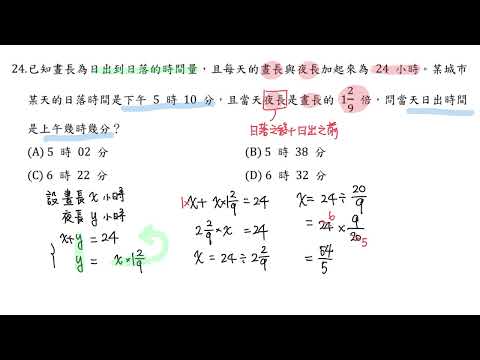 24.已知晝長為日出到日落的時間量,且每天的晝長與夜長加起來為 24 小時。某城市
某天的日落時間是下午 5 時 10 分,且當天夜長是晝長的 1 2/9 倍,問當天日出時間
是上午幾時幾分?
日落之後+日出之前
(A) 5 時 02 分 (B) 5 時 38 分
(C) 6 時 22 分 (D) 6 時 32 分
設晝長 x 小時
夜長 y 小時
x+y = 24
y = x×1 2/9
1x+ x×1 2/9 = 24
2 2/9 × x = 24
x = 24÷2 2/9
x = 24÷ 20/9
= 24 × 9/20
6
5
= 54/5